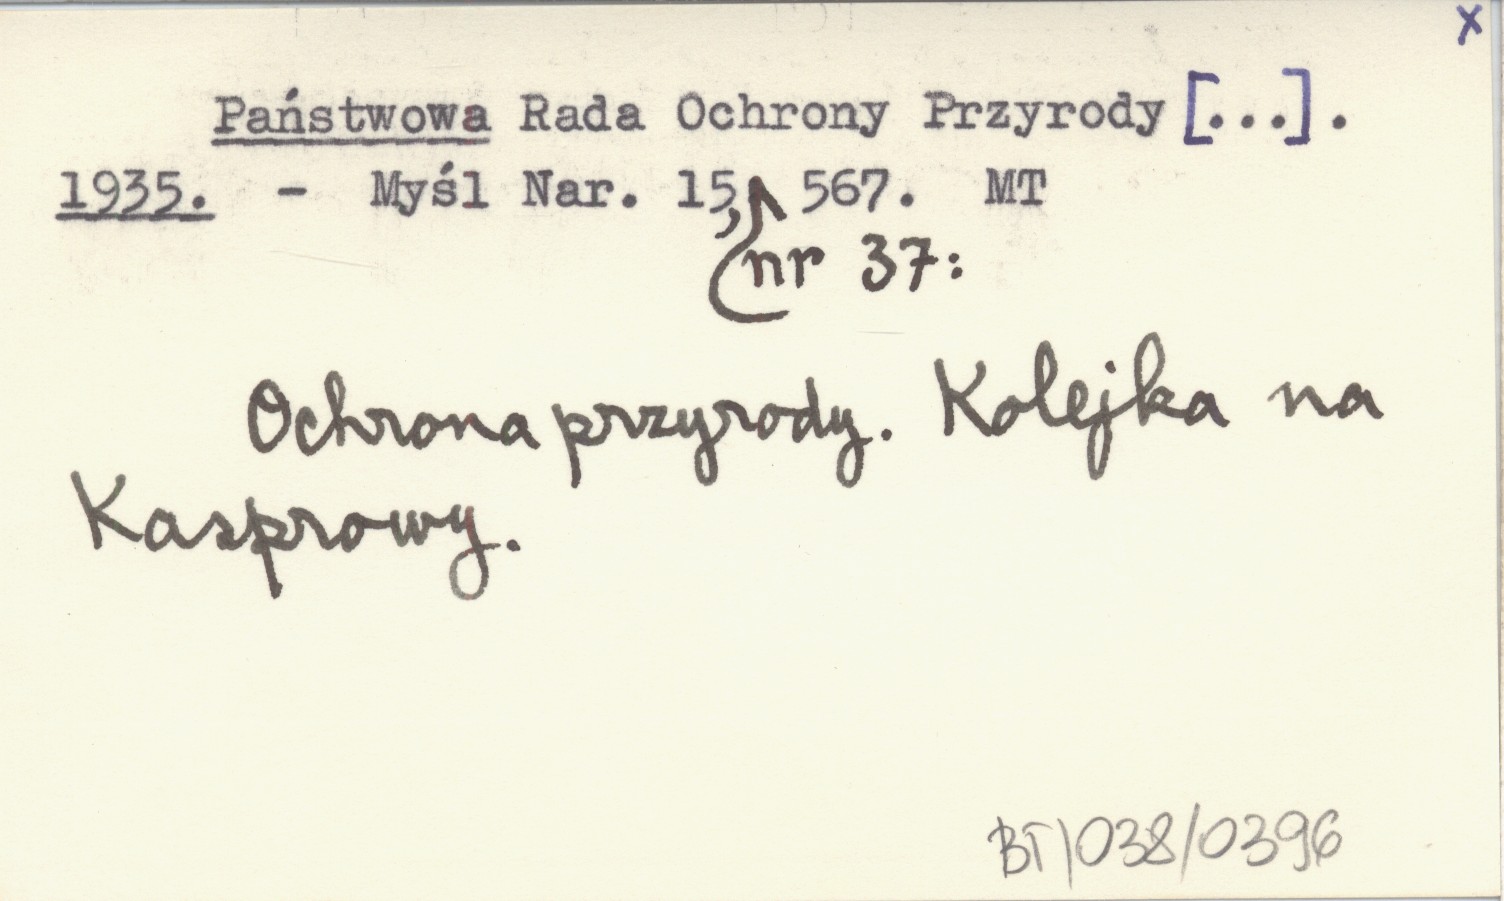 x
Państwowa Rada Ochrony Przyrody [...].
1935. - Myśl Nar. 15, 567. MT
nr 37:
Ochrona przyrody. Kolejka na
Kasprowy.
BT/038/0396